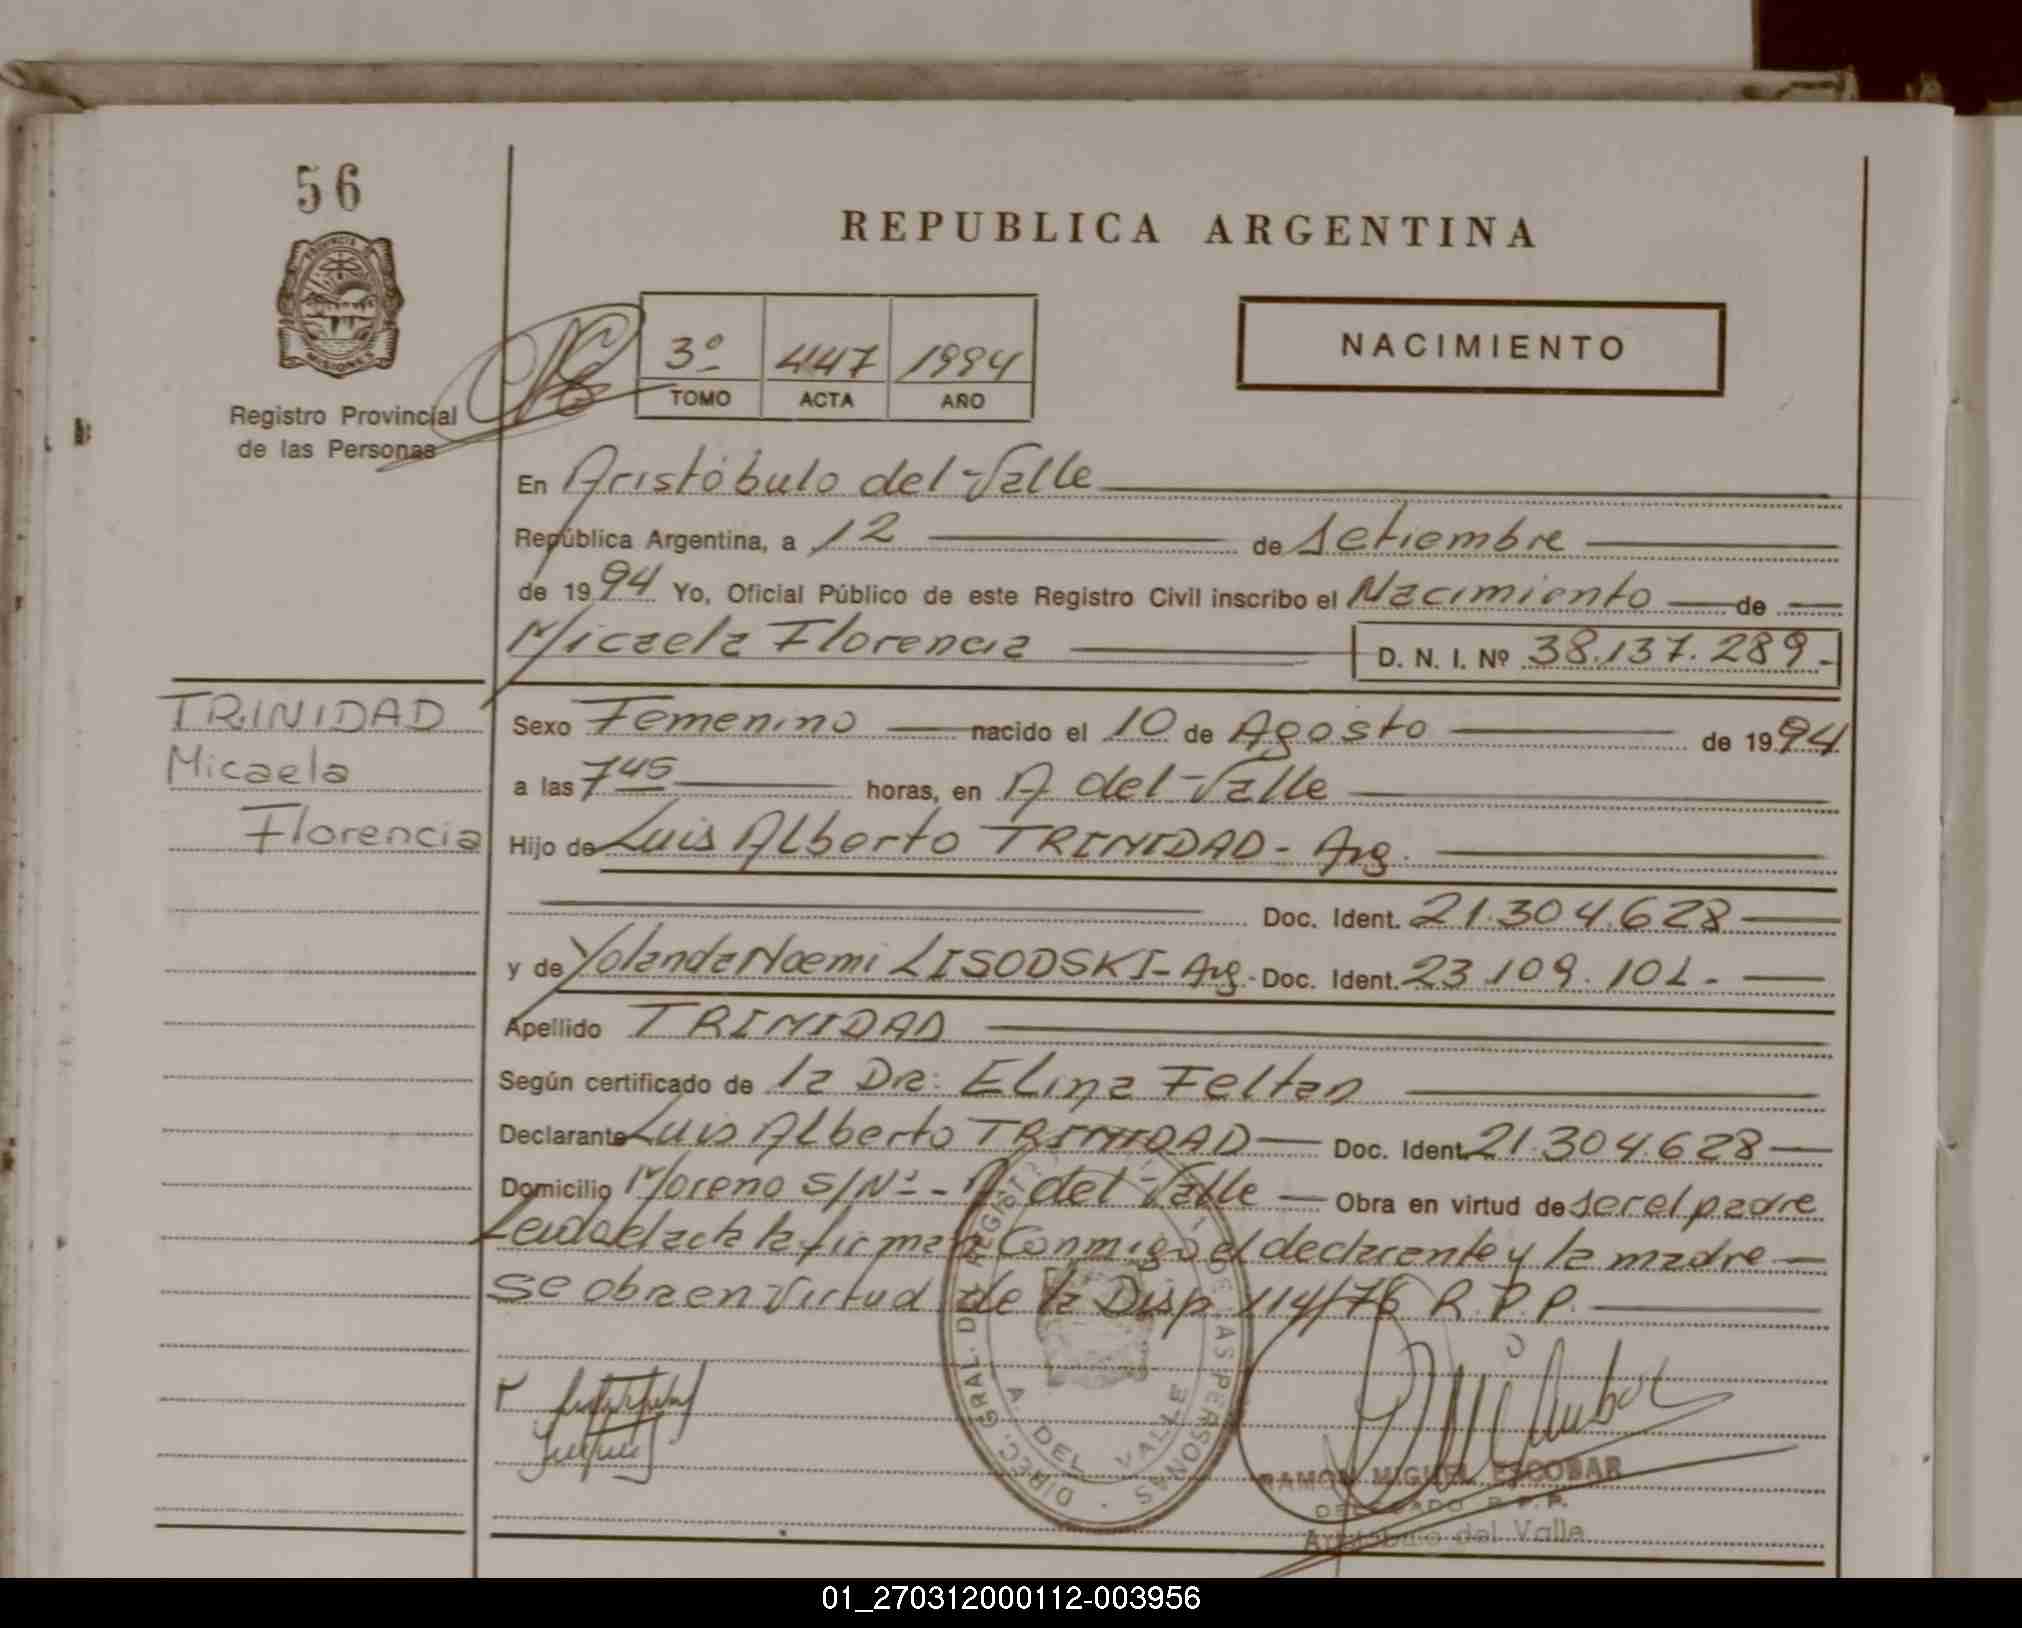 56
REPUBLICA ARGENTINA
PROVINCIA DE MISIONES
Registro Provincial
de las Personas
3º 447 1994
TOMO ACTA AÑO
NACIMIENTO
En Aristóbulo del Valle
República Argentina, a 12 de Setiembre
de 1994 Yo, Oficial Público de este Registro Civil inscribo el Nacimiento de
Micaela Florencia D. N. I. Nº 38.137.289.-
TRINIDAD
Micaela
Florencia
Sexo Femenino nacido el 10 de Agosto de 1994
a las 7 45 horas, en A del Valle
Hijo de Luis Alberto TRINIDAD - Arg.
Doc. Ident. 21.304.628
y de Yolanda Noemi LISODSKI - Arg. - Doc. Ident. 23.109.101.-
Apellido TRINIDAD
Según certificado de la Dra: Elina Feltan
Declarante Luis Alberto TRINIDAD Doc. Ident. 21.304.628
Domicilio Moreno S/Nº - A del Valle Obra en virtud de ser el padre
Leida el acta la firman Conmigo el declarante y la madre
se obra en virtud de la Disp. 114/76 R.P.P.
DIREC. GRAL. DEL REGISTRO DE LAS PERSONAS
A DEL VALLE
RAMON MIGUEL ESCOBAR
DELEGADO R.P.P.
Aristobulo del Valle
01_270312000112-003956